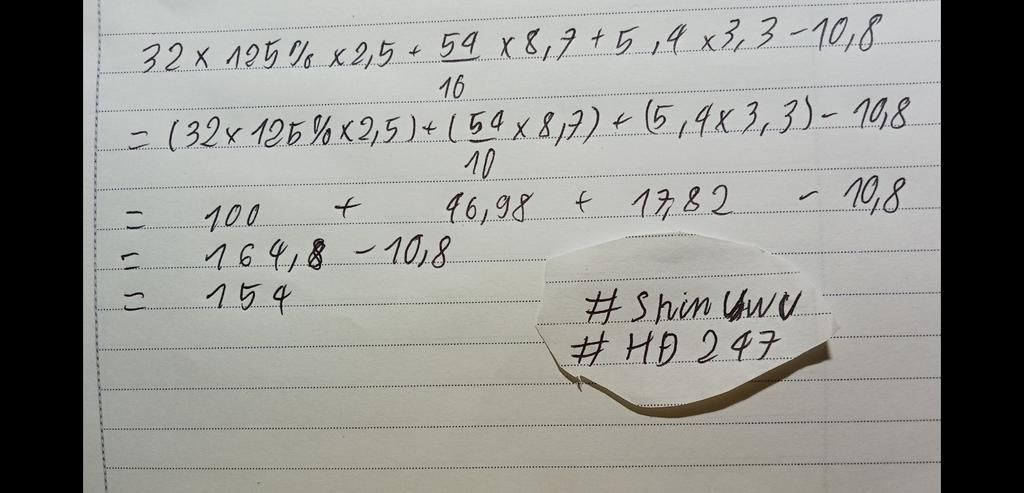 32 × 125% × 2,5 + 54/10 × 8,7 + 5,4 × 3,3 - 10,8
= (32 × 125% × 2,5) + (54/10 × 8,7) + (5,4 × 3,3) - 10,8
= 100 + 46,98 + 17,82 - 10,8
= 164,8 - 10,8
= 154
# Shin UwU
# HĐ 247